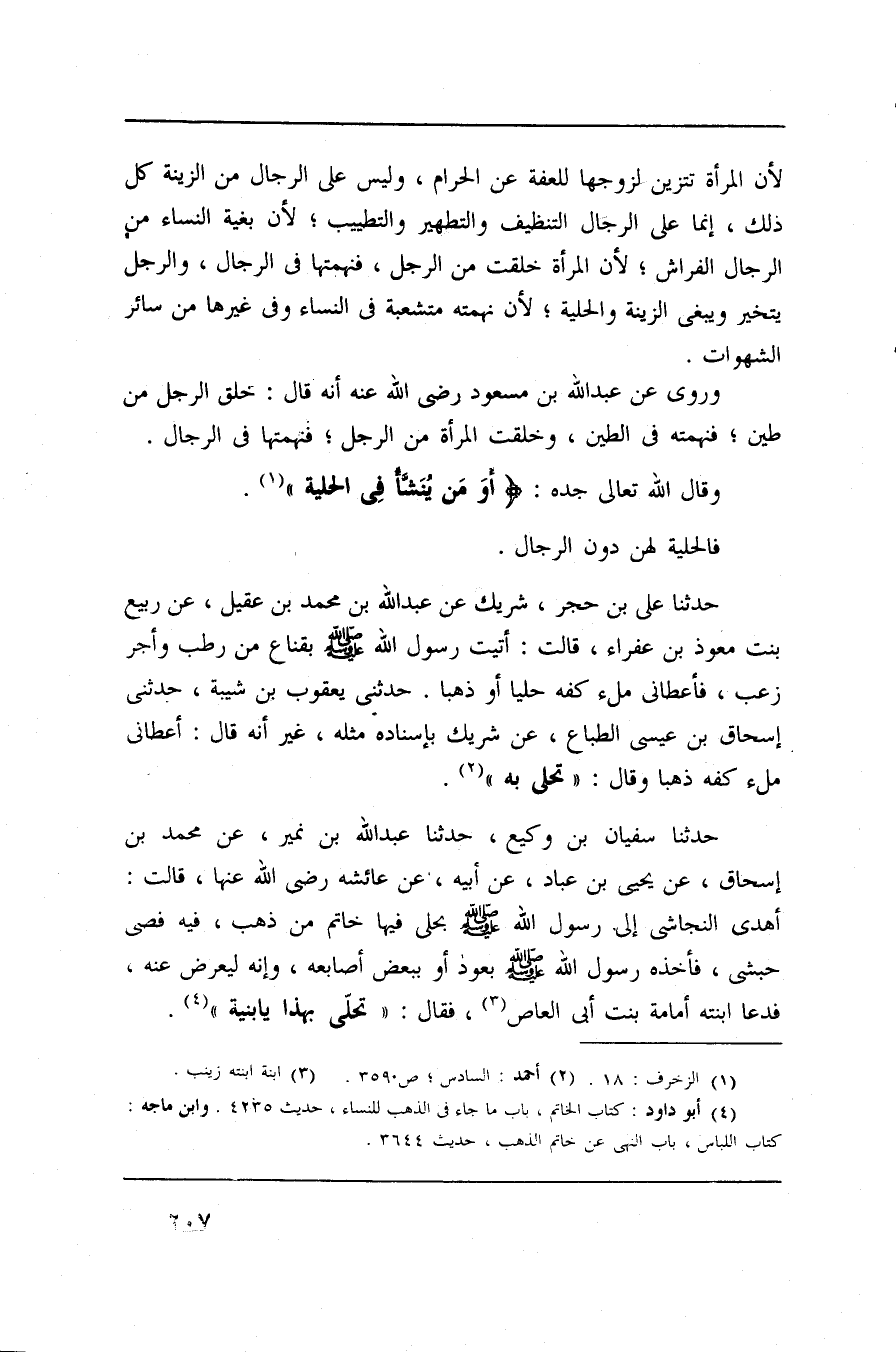 لأن المرأة تتزين لزوجها للعفة عن الحرام ، وليس على الرجال من الزينة كل
ذلك ، إنما على الرجال التنظيف والتطهير والتطييب ؛ لأن بغية النساء من
الرجال الفراش ؛ لأن المرأة خلقت من الرجل ، فنهمتها فى الرجال ، والرجل
يتخير ويبغى الزينة والحلية ؛ لأن نهمته متشعبة فى النساء وفى غيرها من سائر
الشهوات .
وروى عن عبدالله بن مسعود رضى الله عنه أنه قال : خلق الرجل من
طين ؛ فنهمته فى الطين ، وخلقت المرأة من الرجل ؛ فنهمتها فى الرجال .
وقال الله تعالى جده : ﴿ أَوَ مَن يُنَشَّأُ فِى الحلية »(١) .
فالحلية لهن دون الرجال .
حدثنا على بن حجر ، شريك عن عبدالله بن محمد بن عقيل ، عن ربيع
بنت معوذ بن عفراء ، قالت : أتيت رسول الله ﷺ بقناع من رطب وأجر
زعب ، فأعطانى ملء كفه حليا أو ذهبا . حدثنى يعقوب بن شيبة ، حدثنى
إسحاق بن عيسى الطباع ، عن شريك بإسناده مثله ، غير أنه قال : أعطانى
ملء كفه ذهبا وقال : « تحلى به »(٢) .
حدثنا سفيان بن وكيع ، حدثنا عبدالله بن نمير ، عن محمد بن
إسحاق ، عن يحيى بن عباد ، عن أبيه ، عن عائشه رضى الله عنها ، قالت :
أهدى النجاشى إلى رسول الله ﷺ بحلى فيها خاتم من ذهب ، فيه فصى
حبشى ، فأخذه رسول الله ﷺ بعوذ أو ببعض أصابعه ، وإنه ليعرض عنه ،
فدعا ابنته أمامة بنت أبى العاص(٣) ، فقال : « تحلّى بهذا يابنية »(٤) .
(١) الزخرف : ١٨ . (٢) أحمد : السادس ؛ ص٣٥٩٠ . (٣) ابنة ابنته زينب .
(٤) أبو داود : كتاب الخاتم ، باب ما جاء فى الذهب للنساء ، حديث ٤٢٣٥ . وابن ماجه :
كتاب اللباس ، باب النهى عن خاتم الذهب ، حديث ٣٦٤٤ .
٦٠٧